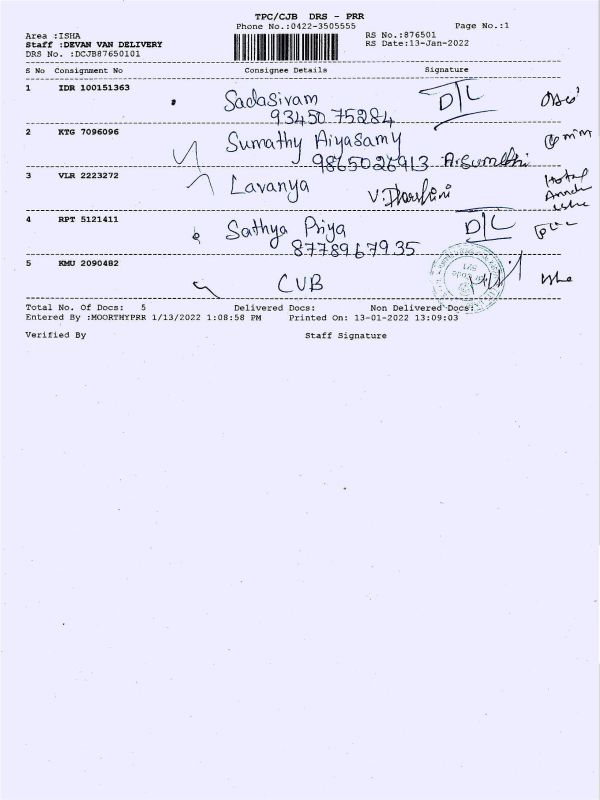 TPC/CJB DRS - PRR
Phone No.:0422-3505555 Page No.:1
Area :ISHA RS No.:876501
Staff :DEVAN VAN DELIVERY RS Date:13-Jan-2022
DRS No. :DCJB87650101
S No Consignment No Consignee Details Signature
1 IDR 100151363 Sadasivam D/L
93450 75284
2 KTG 7096096 Sumathy Aiyasamy
9865026913 A.Sumathi
3 VLR 2223272 Lavanya
4 RPT 5121411 Sathya Priya D/L
8778967935
5 KMU 2090482 CUB
Total No. Of Docs: 5 Delivered Docs: Non Delivered Docs:
Entered By :MOORTHYPRR 1/13/2022 1:08:58 PM Printed On: 13-01-2022 13:09:03
Verified By Staff Signature